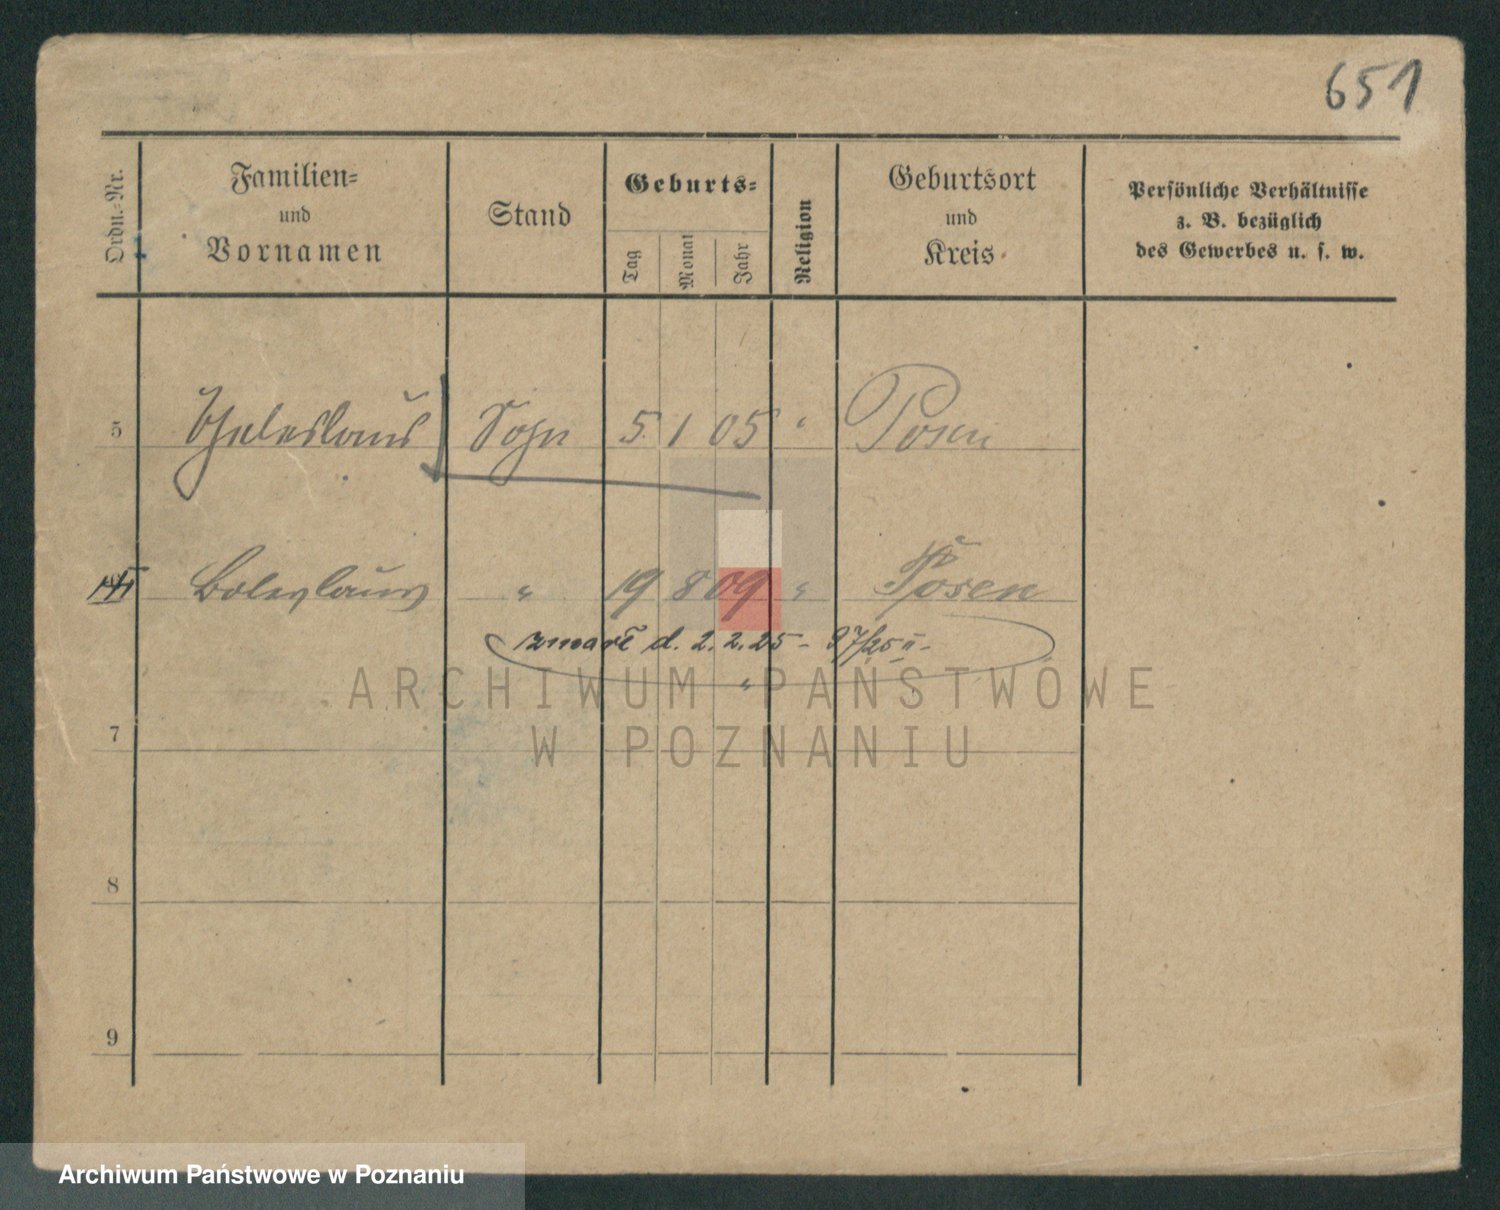 651
Ordn.-Nr.
Familien-
und
Vornamen
Stand
Geburts-
Tag
Monat
Jahr
Religion
Geburtsort
und
Kreis
Persönliche Verhältnisse
z. B. bezüglich
des Gewerbes u. s. w.
5 Sohn 5. 1 05 " Posen
Boleslaus " 19 8 09 " Posen
zmarł d. 2. 2. 25 - 97/25 II -
ARCHIWUM PAŃSTWOWE
W POZNANIU
7
8
9
Archiwum Państwowe w Poznaniu